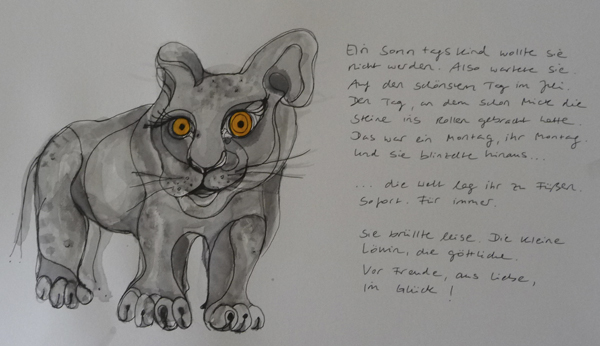 Ein Sonntagskind wollte sie
nicht werden. Also wartete sie.
Auf den schönsten Tag im Juli.
Den Tag, an dem schon Mick die
Steine ins Rollen gebracht hatte.
Das war ein Montag, ihr Montag.
Und sie blinzelte hinaus...
... die Welt lag ihr zu Füßen.
Sofort. Für immer.
Sie brüllte leise. Die kleine
Löwin, die göttliche.
Vor Freude, aus Liebe,
im Glück!